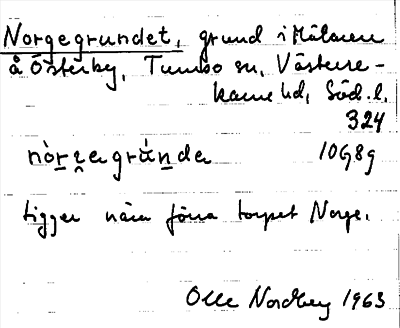 Norgegrundet, grund i Mälaren
å Österby, Tumbo sn, Västerre-
karne hd, Söd. l.
324
nòrgegrúnde 10G8g
ligger nära förra torpet Norge.
Olle Nordberg 1963